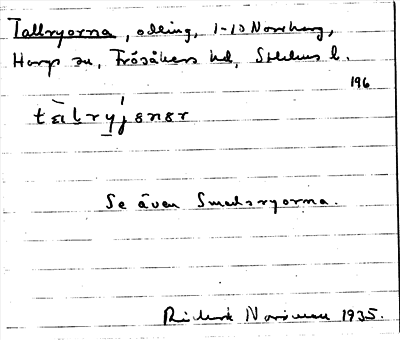 Tallryorna, odling, 1-10 Norrharg,
Hargs sn, Frösåkers hd, Sthlms l.
196
Se även Smedsryorna.
Rickard Norrman 1935.